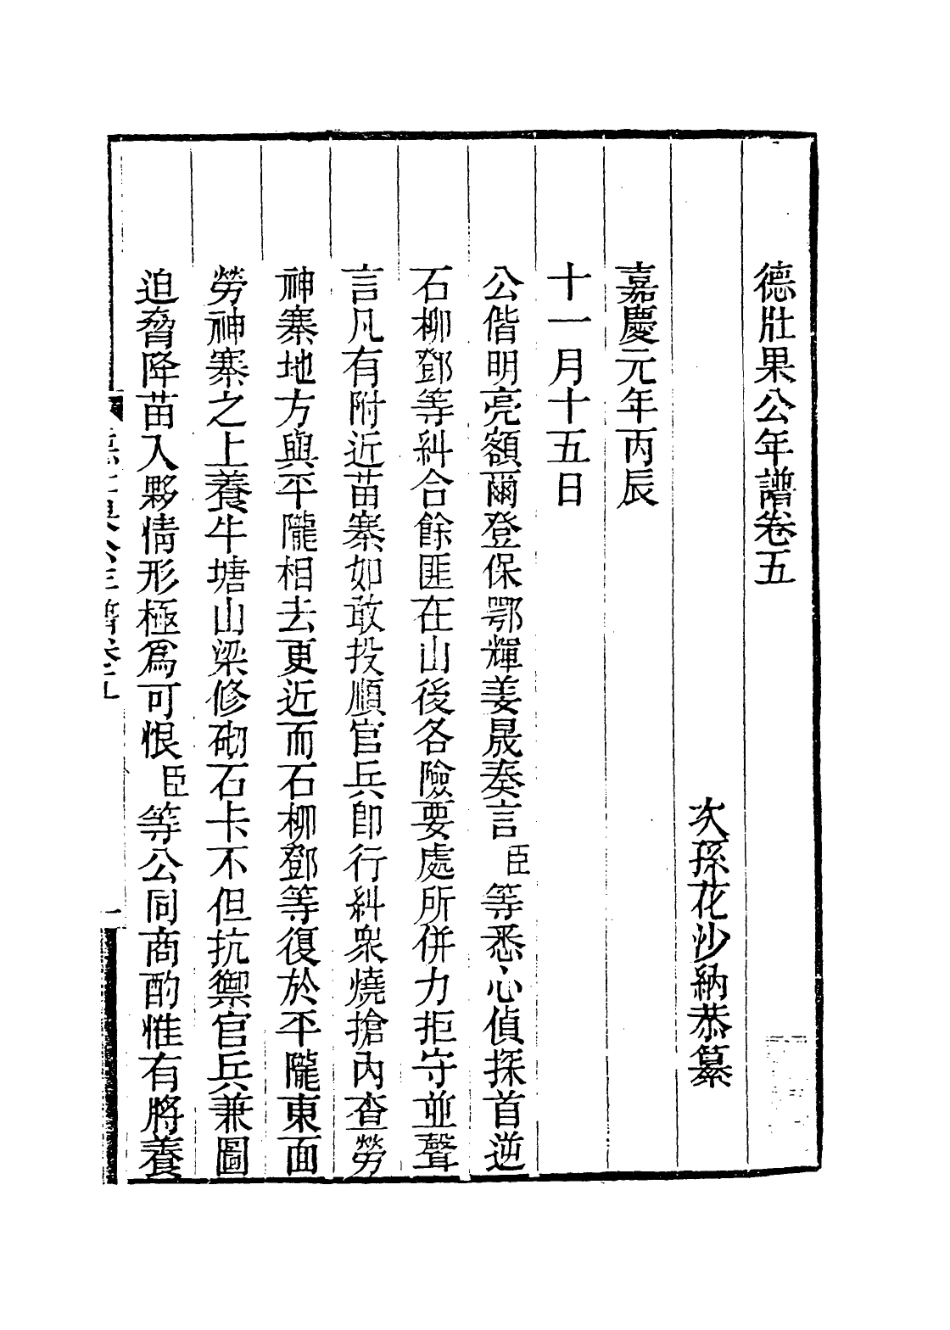 德壯果公年譜卷五
次孫花沙納恭纂
嘉慶元年丙辰
十一月十五日
公偕明亮額爾登保鄂輝姜晟奏言臣等悉心偵探首逆
石柳鄧等糾合餘匪在山後各險要處所併力拒守並聲
言凡有附近苗寨如敢投順官兵卽行糾衆燒搶內查勞
神寨地方與平隴相去更近而石柳鄧等復於平隴東面
勞神寨之上養牛塘山梁修砌石卡不但抗禦官兵兼圖
迫脅降苗入夥情形極爲可恨臣等公同商酌惟有將養
德壯果公年譜卷五
一